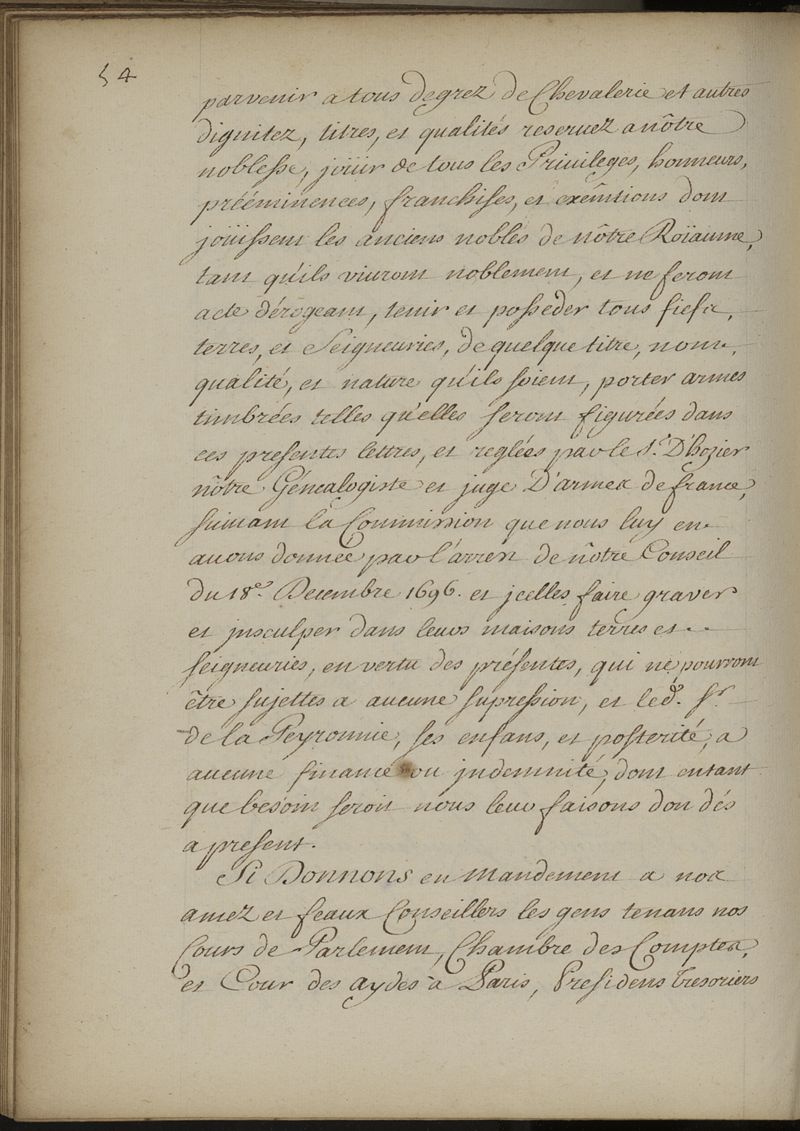 54
parvenir a tous degrez de Chevalerie et autres
dignitez, titres, et qualités reservez a nôtre
noblesse, joüir de tous les Privileges, honneurs,
prééminences, franchises, et exêmtions dont
joüissent les anciens nobles de nôtre Roïaume,
tant qu'ils vivront noblement, et ne feront
acte dérogeant, tenir et posseder tous fiefs,
terres, et Seigneuries, de quelque titre, nom,
qualité, et nature qu'ils soient, porter armes
timbrées telles qu'elles seront figurées dans
ces presentes lettres, et reglées par le Sr. D'hozier
nôtre Génealogiste et juge D'armes de france,
suivant la Commission que nous luy en
avons donnée par l'arrêt de nôtre Conseil
du 18e. Decembre 1696. et jcelles faire graver
et jnsculper dans leurs maisons terres et
seigneuries, en vertu des présentes, qui ne pourront
être sujettes a aucune supression, et led. Sr
de la Peyronnie, ses enfans, et posterité, a
aucune finance ou jndemnité, dont entant
que besoin seroit nous leur faisons don dés
a present.
Si Donnons en mandement a nos
amez et feaux Conseillers les gens tenans nos
Cours de Parlement, Chambre des Comptes,
et Cour des aydes à Paris, Presidens Tresoriers